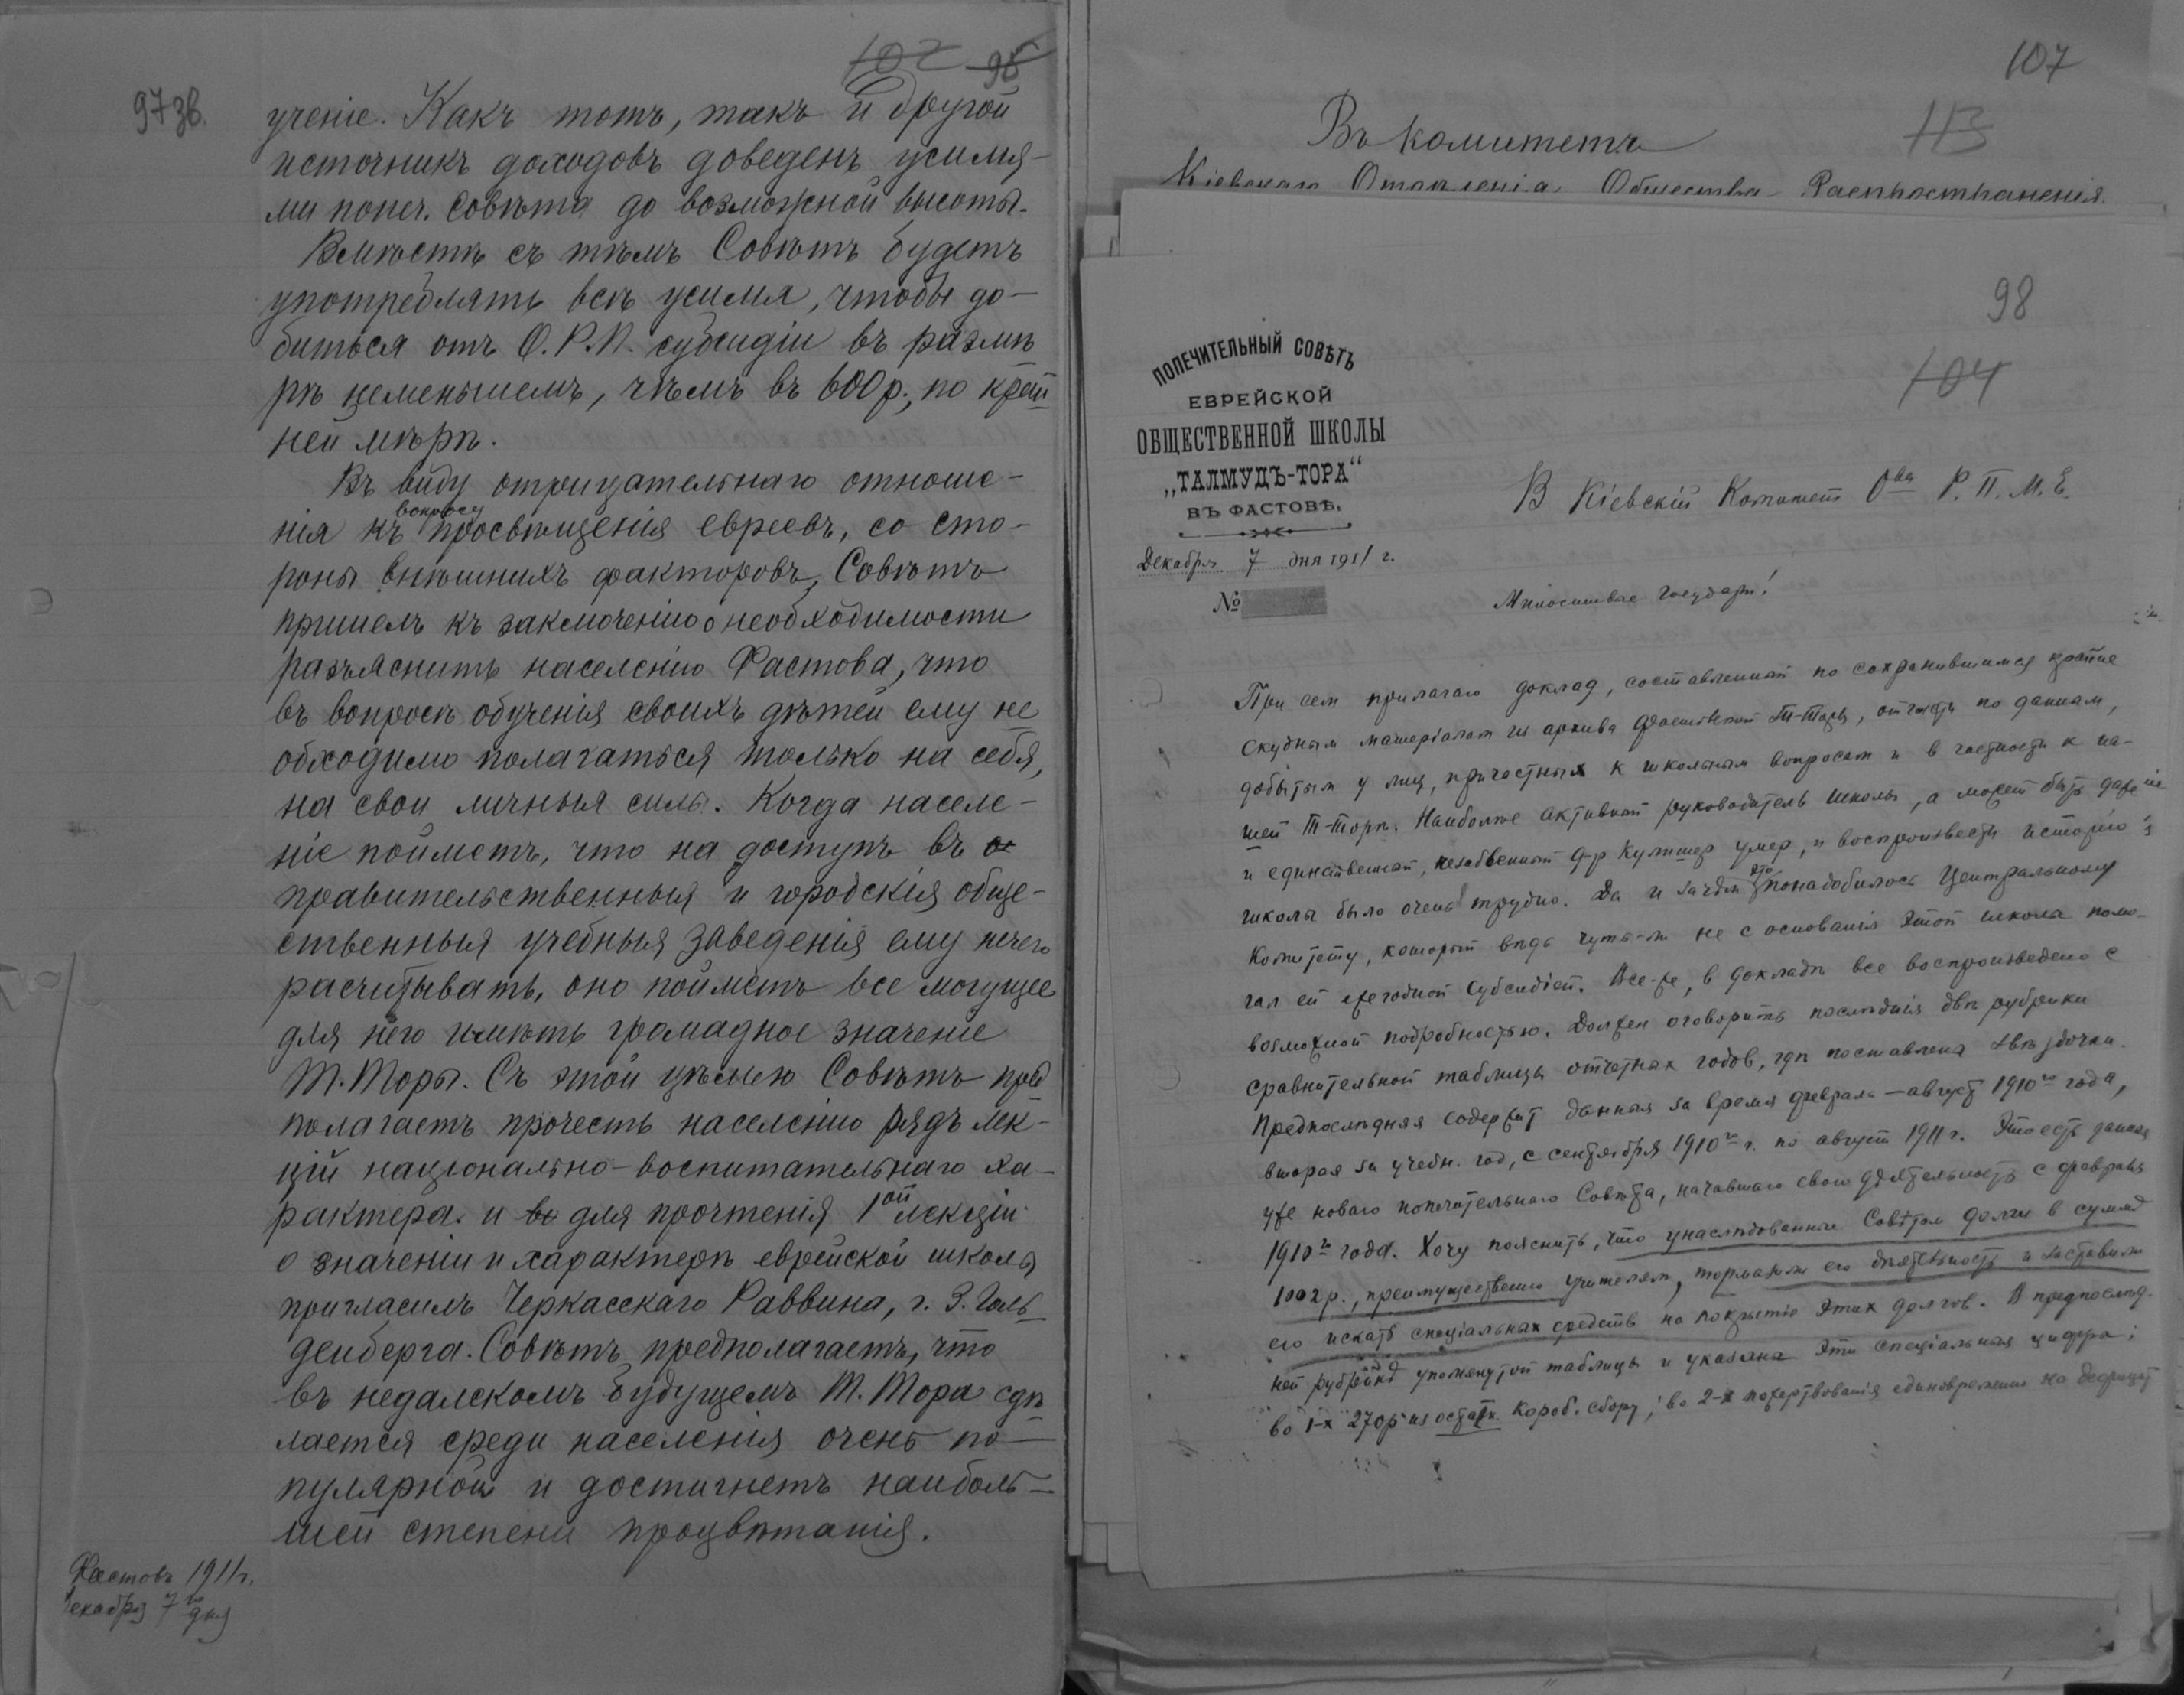 102 98
97 зв.
ученіе. Какъ тотъ, такъ и другой
источникъ доходовъ доведенъ усилія-
ми попеч. Совѣта до возможной высоты.
Вмѣстѣ съ тѣмъ Совѣтъ будетъ
употреблять всѣ усилія, чтобы до-
биться отъ О.Р.П. субсидіи въ размѣ
рѣ неменьшемъ, чѣмъ въ 600 р., по край
ней мѣрѣ.
Въ виду отрицательнаго отноше-
нія къ вопросу просвѣщенія евреевъ, со сто-
роны внѣшнихъ факторовъ, Совѣтъ
пришелъ къ заключенію о необходимости
разъяснить населенію Фастова, что
въ вопросѣ обученія своихъ дѣтей ему не
обходимо полагаться только на себя,
на свои личныя силы. Когда населе-
ніе пойметъ, что на доступъ въ
правительственныя и городскія обще-
ственныя учебныя заведенія ему нечего
расчитывать, оно пойметъ все могущее
для него имѣть громадное значеніе
Т.Торы. Съ этой цѣлью Совѣтъ пред
полагаетъ прочесть населенію рядъ лек-
цій національно-воспитательнаго ха-
рактера. и для прочтенія 1ой лекціи
о значеніи и характерѣ еврейской школы
пригласилъ Черкасскаго Раввина, г. З. Голь
денберга. Совѣтъ предполагаетъ, что
въ недалекомъ будущемъ Т. Тора сдѣ
лается среди населенія очень по-
пулярной и достигнетъ наиболь-
шей степени процвѣтанія.
Фастовъ 1911 г.
Декабря 7го дня
107
113
Въ Комитетъ
Кіевскаго Отдѣленія Общества Распространенія
98
104
ПОПЕЧИТЕЛЬНЫЙ СОВѢТЪ
ЕВРЕЙСКОЙ
ОБЩЕСТВЕННОЙ ШКОЛЫ
„ТАЛМУДЪ-ТОРА“
ВЪ ФАСТОВѢ.
Декабря 7 дня 1911 г.
№
В Кіевскій Комитет О-ва Р. П. М. Е.
Милостивые Государи!
При сем прилагаю доклад, составленный по сохранившимся крайне
скудным матеріалам из архива Фастовской Т-Торы, отчасти по данным,
добытым у лиц, причастных к школьным вопросам и в частности к на-
шей Т-Торѣ. Наиболѣе активный руководитель школы, а может быть даже
и единственный, незабвенный д-р Кулишер умер, и воспроизвести исторію
школы было очень трудно. Да и зачѣм это понадобилось Центральному
Комитету, который вѣдь чуть-ли не с основанія этой школы помо-
гал ей ежегодной субсидіей. Все-же, в докладѣ все воспроизведено с
возможной подробностью. Должен оговорить послѣднія двѣ рубрики
сравнительной таблицы отчетных годов, гдѣ поставлена звѣздочка.
Предпослѣдняя содержит данныя за время февраль — август 1910го года,
вторая за учебн. год, с сентября 1910го г. по август 1911 г. Это есть данныя
уже новаго попечительнаго Совѣта, начавшаго свою дѣятельность с февраля
1910го года. Хочу пояснить, что унаслѣдованные Совѣтом долги в суммѣ
1002 р., преимущественно учителям, тормазили его дѣятельность и заставили
его искать спеціальных средств на покрытіе этих долгов. В предпослѣд-
ней рубрикѣ упомянутой таблицы и указана эти спеціальныя цифры:
во 1-х 270 р из остатк. короб. сбору; во 2-х пожертвованія единовременно на дефицит